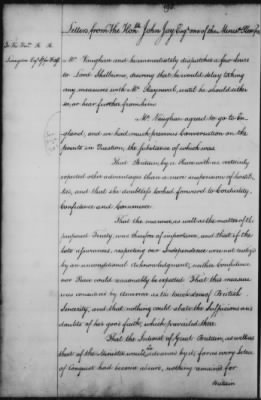 Letters from The Honble John Jay Esqr one of the Minist Plenipo
To the Hon. R. R.
Livingston Esqr
Mr Vaughan and he immediately dispatched a few lines
to Lord Shelburne, desiring that he would delay taking
any measures with Mr Rayneval, until he should either
see, or hear further from him
Mr Vaughan agreed to go to En-
gland, and we had much previous Conversation on the
points in Question, the Substance of which was
That Britain, by a Peace with us, certainly
expected other advantages than a mere suspension of hostili-
ties, and that she doubtless looked forward to Cordiality,
Confidence and Commerce
That the manner, as well as the matter of the
proposed Treaty, was therefore of importance, and that if the
late assurances, respecting our Independence were not realiz'd
by an unconditional Acknowledgment, neither Confidence
nor Peace could reasonably be expected. That this measure
was considered by America as the touchstone of British
Sincerity, and that nothing could abate the Suspicions and
doubts of her good faith, which prevailed there
That the Interest of Great Britain, as well as
that of the Minister would be advanced by it; for as every Idea
of Conquest had become absurd, nothing remained for
Britain